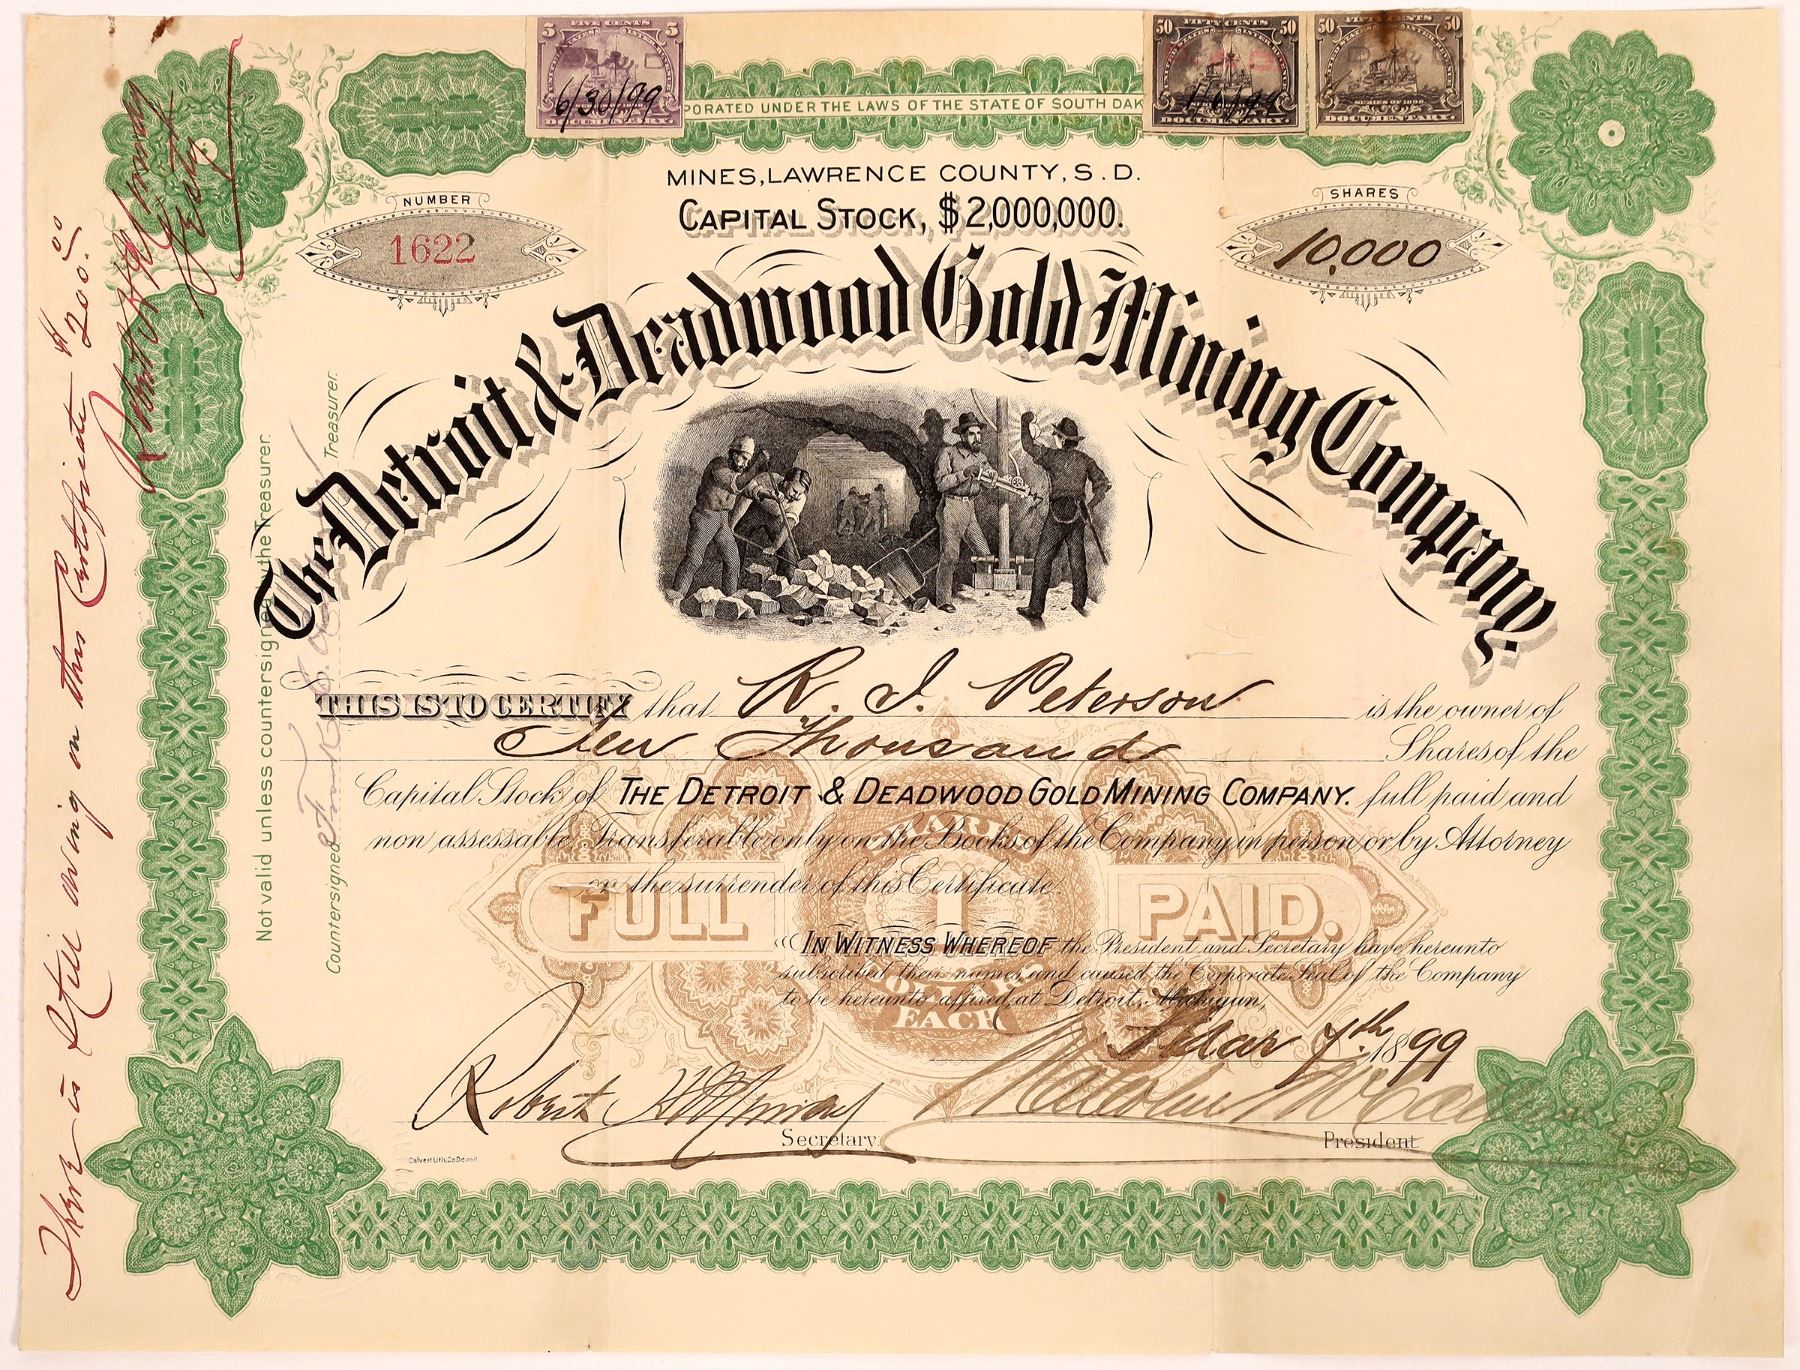 FIVE CENTS
5 5
6/30/99
DOCUMENTARY.
FIFTY CENTS
50 50
DOCUMENTARY.
FIFTY CENTS
50 50
SERIES OF 1898
DOCUMENTARY.
PORATED UNDER THE LAWS OF THE STATE OF SOUTH DAK
MINES, LAWRENCE COUNTY, S.D.
CAPITAL STOCK, $2,000,000.
NUMBER
1622
SHARES
10,000
The Detroit & Deadwood Gold Mining Company.
THIS IS TO CERTIFY that R. J. Peterson is the owner of
Ten Thousand Shares of the
Capital Stock of THE DETROIT & DEADWOOD GOLD MINING COMPANY. full paid and
non assessable Transferable only on the Books of the Company in person or by Attorney
on the surrender of this Certificate.
FULL 1 PAID.
EACH
IN WITNESS WHEREOF the President and Secretary have hereunto
subscribed their names and caused the Corporate Seal of the Company
to be hereunto affixed, at Detroit, Michigan,
Mar 7th 1899
Robert H Murray
Secretary.
Malcolm
President
Calvert Lith. Co. Detroit.
Not valid unless countersigned by the Treasurer.
Countersigned Treasurer.
There is still owing on this Certificate $200.00
Robert H Murray
Secty